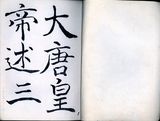 大唐皇
帝述三